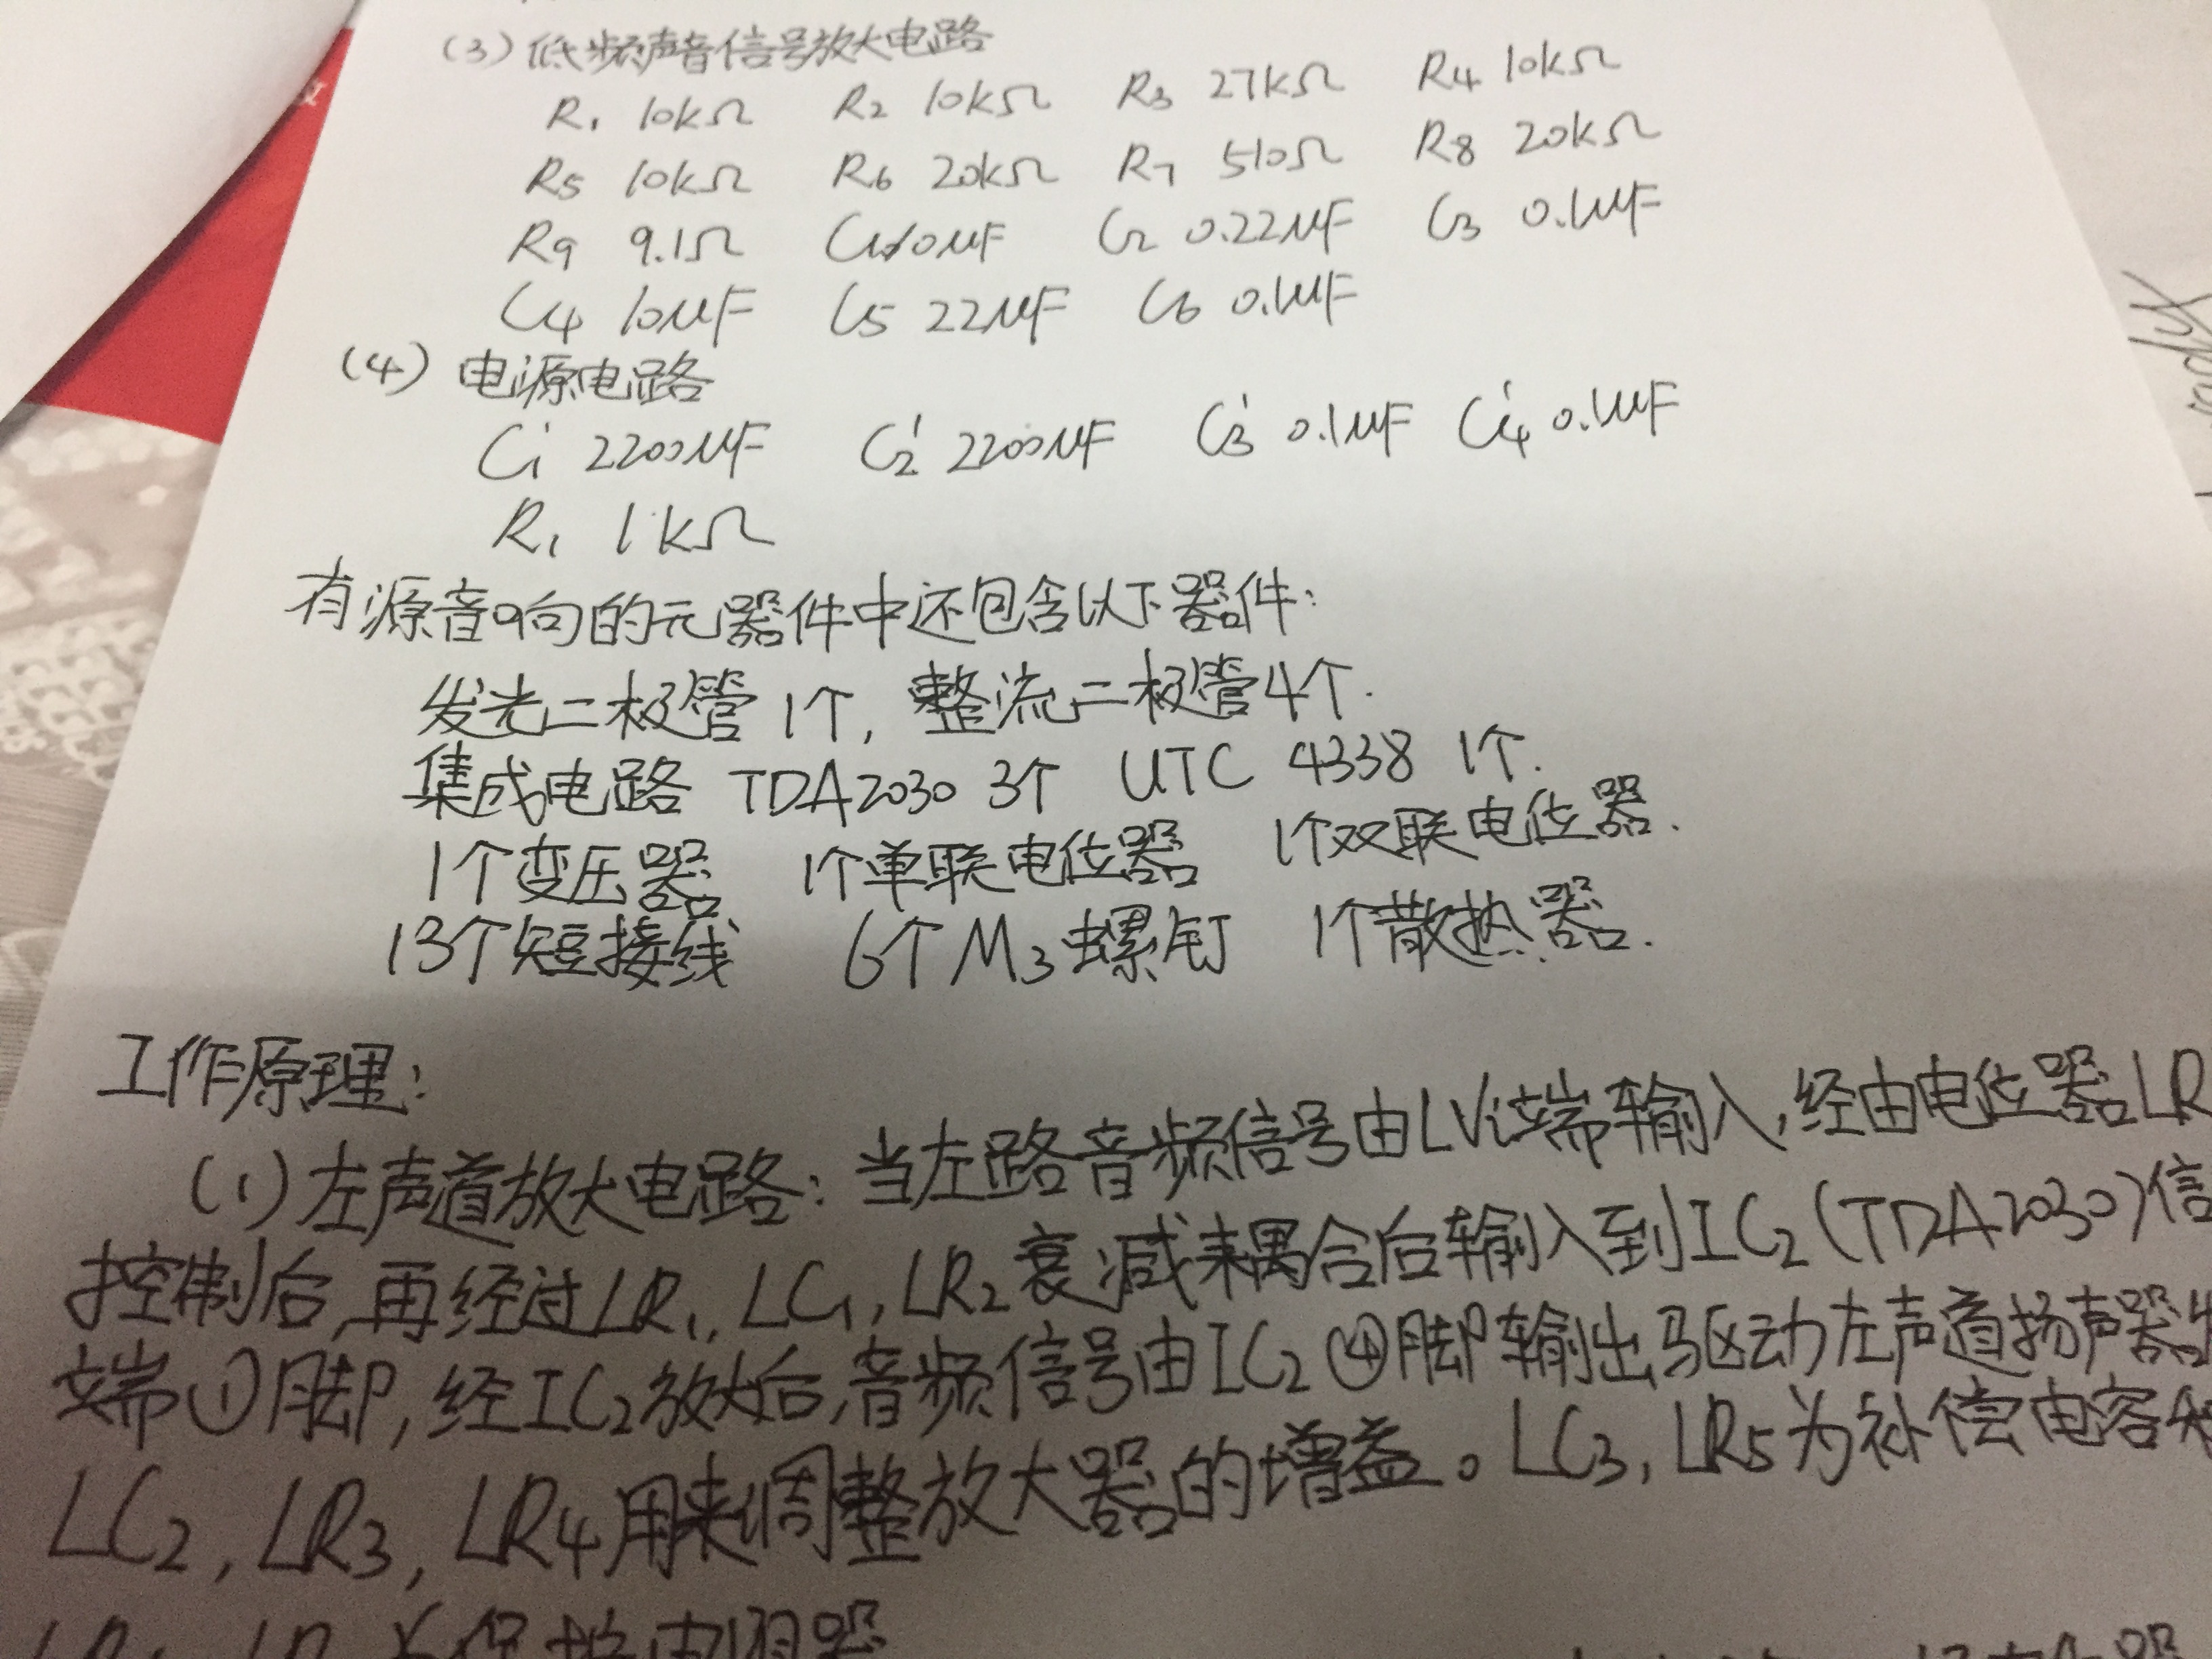 (3) 低频声音信号放大电路
R1 10kΩ R2 10kΩ R3 27kΩ R4 10kΩ
R5 10kΩ R6 20kΩ R7 510Ω R8 20kΩ
R9 9.1Ω C1 10μF C2 0.22μF C3 0.1μF
C4 10μF C5 22μF C6 0.1μF
(4) 电源电路
C1' 2200μF C2' 2200μF C3' 0.1μF C4' 0.1μF
R1 1kΩ
有源音响的元器件中还包含以下器件:
发光二极管 1个, 整流二极管4个.
集成电路 TDA2030 3个 UTC 4338 1个.
1个变压器 1个单联电位器 1个双联电位器.
13个短接线 6个M3螺钉 1个散热器.
工作原理:
(1) 左声道放大电路: 当左路音频信号由LVi端输入,经由电位器LR
控制后,再经过LR1, LC1, LR2衰减耦合后输入到IC2(TDA2030)信
端①脚,经IC2放大后,音频信号由IC2④脚输出驱动左声道扬声器
LC2, LR3, LR4用来调整放大器的增益。LC3, LR5为补偿电容